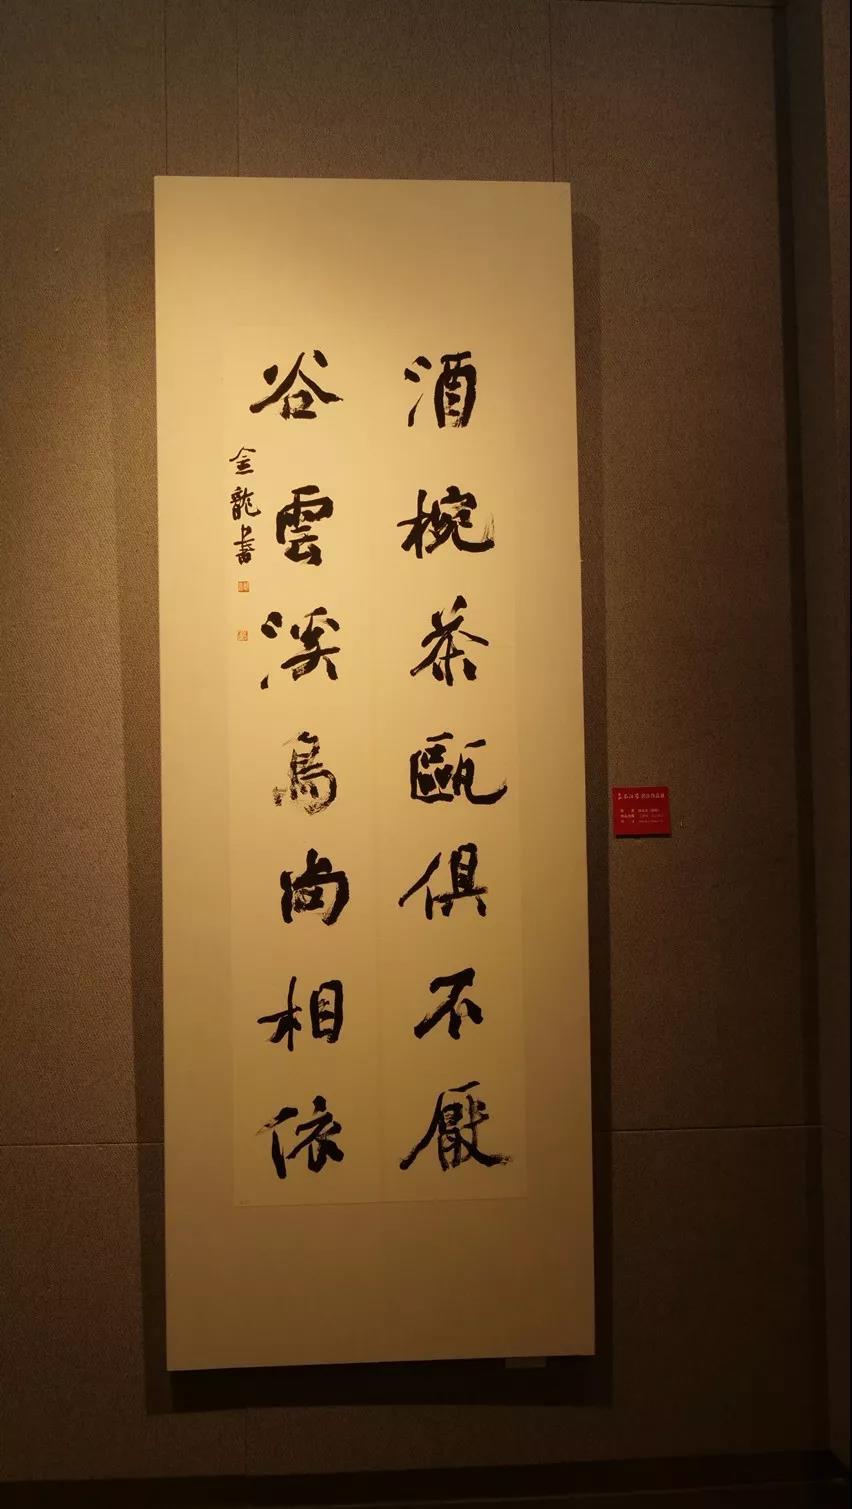 酒椀茶甌俱不厭
谷雲溪鳥尚相依
金龍書